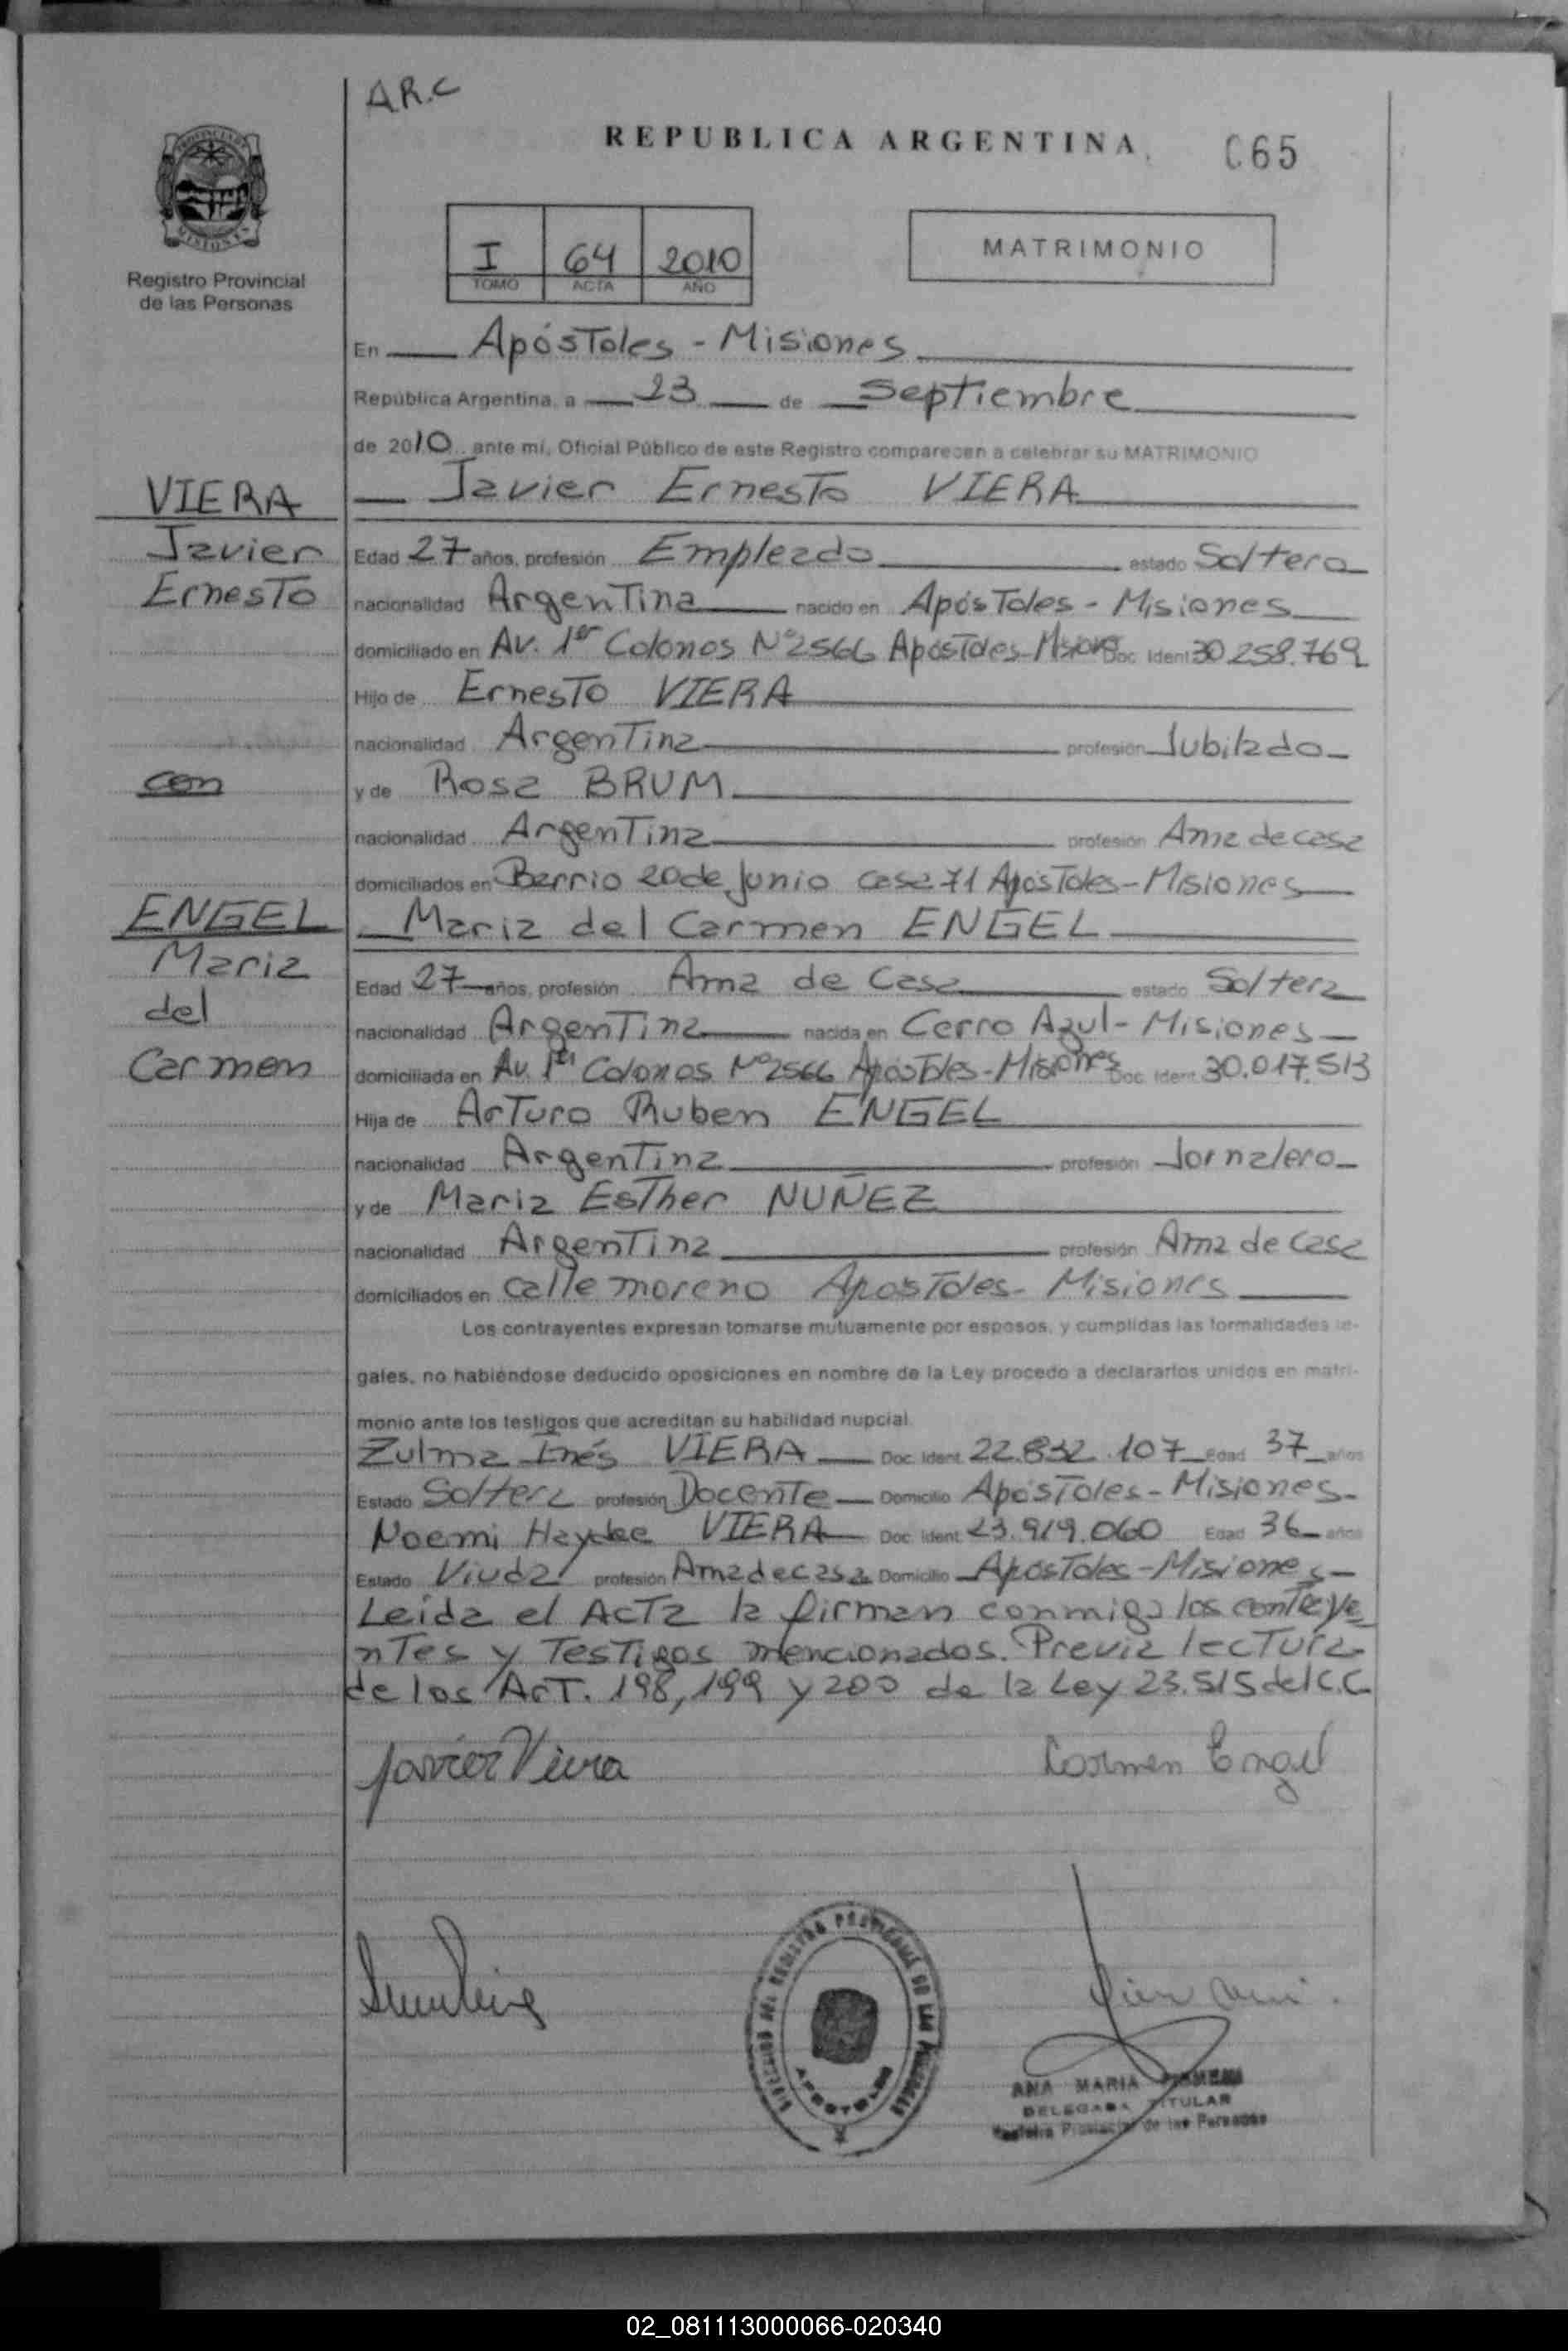 A.R.C
REPUBLICA ARGENTINA
065
PROVINCIA DE
MISIONES
Registro Provincial
de las Personas
I 64 2010
TOMO ACTA AÑO
MATRIMONIO
En Apóstoles - Misiones
República Argentina, a 23 de Septiembre
de 2010 ante mí, Oficial Público de este Registro comparecen a celebrar su MATRIMONIO
VIERA
Javier
Ernesto
con
ENGEL
Maria
del
Carmen
Javier Ernesto VIERA
Edad 27 años, profesión Empleado estado Soltero
nacionalidad Argentina nacido en Apóstoles - Misiones
domiciliado en Av. 1er Colonos Nº2566 Apóstoles-Misiones Doc. Ident 30 258.769
Hijo de Ernesto VIERA
nacionalidad Argentina profesión Jubilado
y de Rosa BRUM
nacionalidad Argentina profesión Ama de casa
domiciliados en Barrio 20 de Junio casa 71 Apóstoles-Misiones
Maria del Carmen ENGEL
Edad 27 años, profesión Ama de Casa estado Soltera
nacionalidad Argentina nacida en Cerro Azul - Misiones
domiciliada en Av. 1er Colonos Nº2566 Apóstoles-Misiones Doc. Ident. 30.017.513
Hija de Arturo Ruben ENGEL
nacionalidad Argentina profesión Jornalero
y de Maria Esther NUÑEZ
nacionalidad Argentina profesión Ama de Casa
domiciliados en calle moreno Apostoles- Misiones
Los contrayentes expresan tomarse mutuamente por esposos, y cumplidas las formalidades le-
gales, no habiéndose deducido oposiciones en nombre de la Ley procedo a declararlos unidos en matri-
monio ante los testigos que acreditan su habilidad nupcial.
Zulma Inés VIERA Doc. Ident. 22.832.107 Edad 37 años
Estado Soltera profesión Docente Domicilio Apóstoles-Misiones-
Noemi Haydee VIERA Doc. Ident. 23.919.060 Edad 36 años
Estado Viuda profesión Ama de casa Domicilio Apóstoles-Misiones-
Leída el Acta la firman conmigo los contraye
ntes y Testigos mencionados. Previa lectura
de los Art. 198, 199 y 200 de la Ley 23.515 del C.C
Javier Viera
Carmen Engel
APOSTOLES
ANA MARIA
DELEGADA TITULAR
Registro Provincial de las Personas
02_081113000066-020340